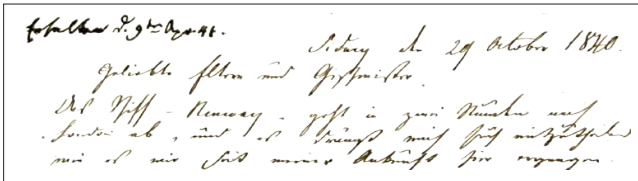 Erhalten d. 9ten Apr. 41.
Sidney den 29 October 1840.
Geliebte Eltern und Geschwister
Das Schiff - - geht in zwei Stunden nach
London ab, und es drängt mich Euch mitzutheilen
wie es mir seit meiner Ankunft hier ergangen.